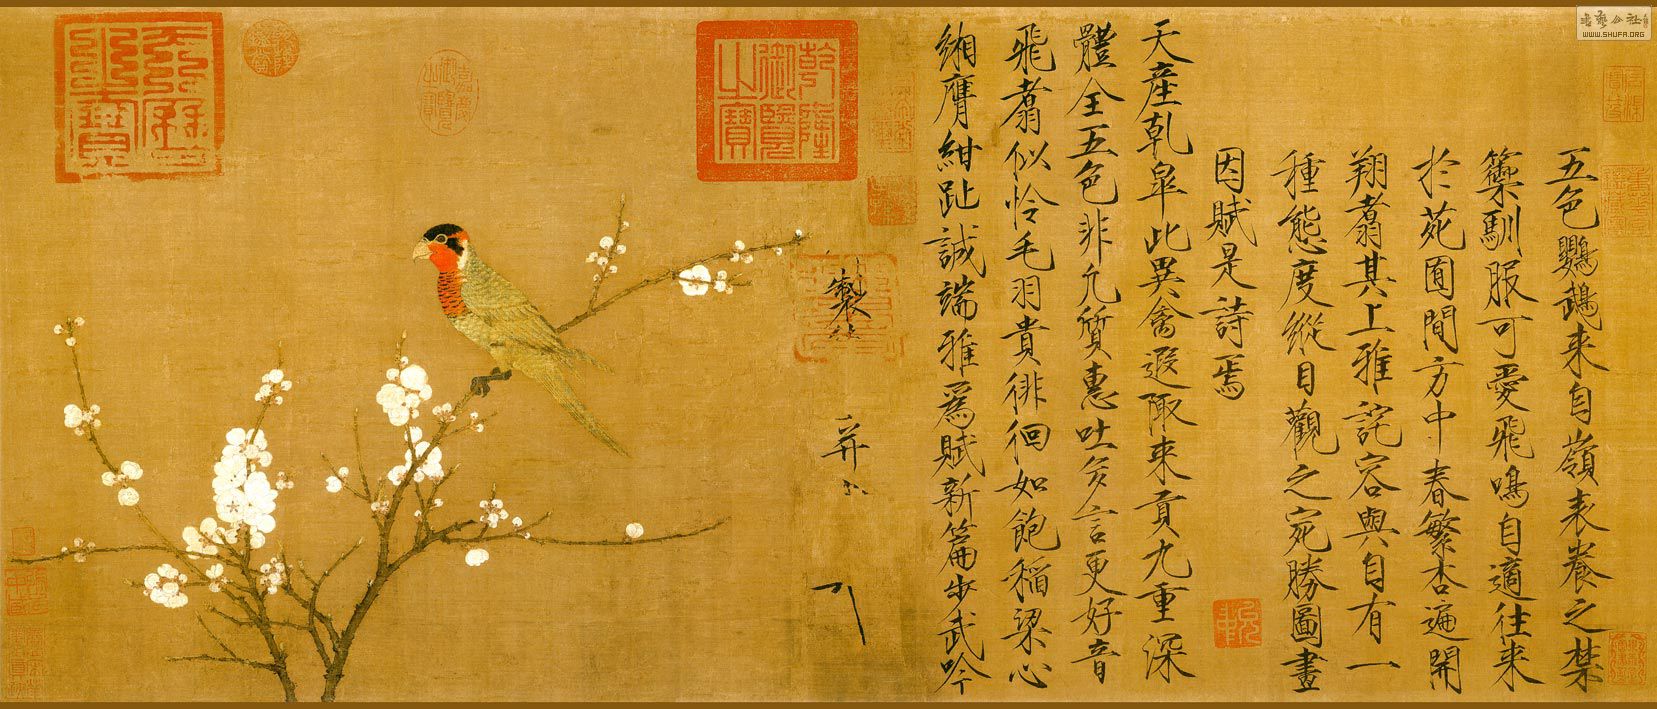 五色鸚鵡来自嶺表養之禁
籞馴服可愛飛鳴自適往来
於苑囿間方中春繁杏遍開
翔翥其上雅詫容與自有一
種態度縱目觀之宛勝圖畫
因賦是詩焉
天産乾皐此異禽遐陬来貢九重深
體全五色非凡質惠吐多言更好音
飛翥似怜毛羽貴徘徊如飽稻粱心
緗膺紺趾誠端雅爲賦新篇步武吟
製
并
乾隆御覽之寶
嘉慶御覽之寶
WWW.SHUFA.ORG